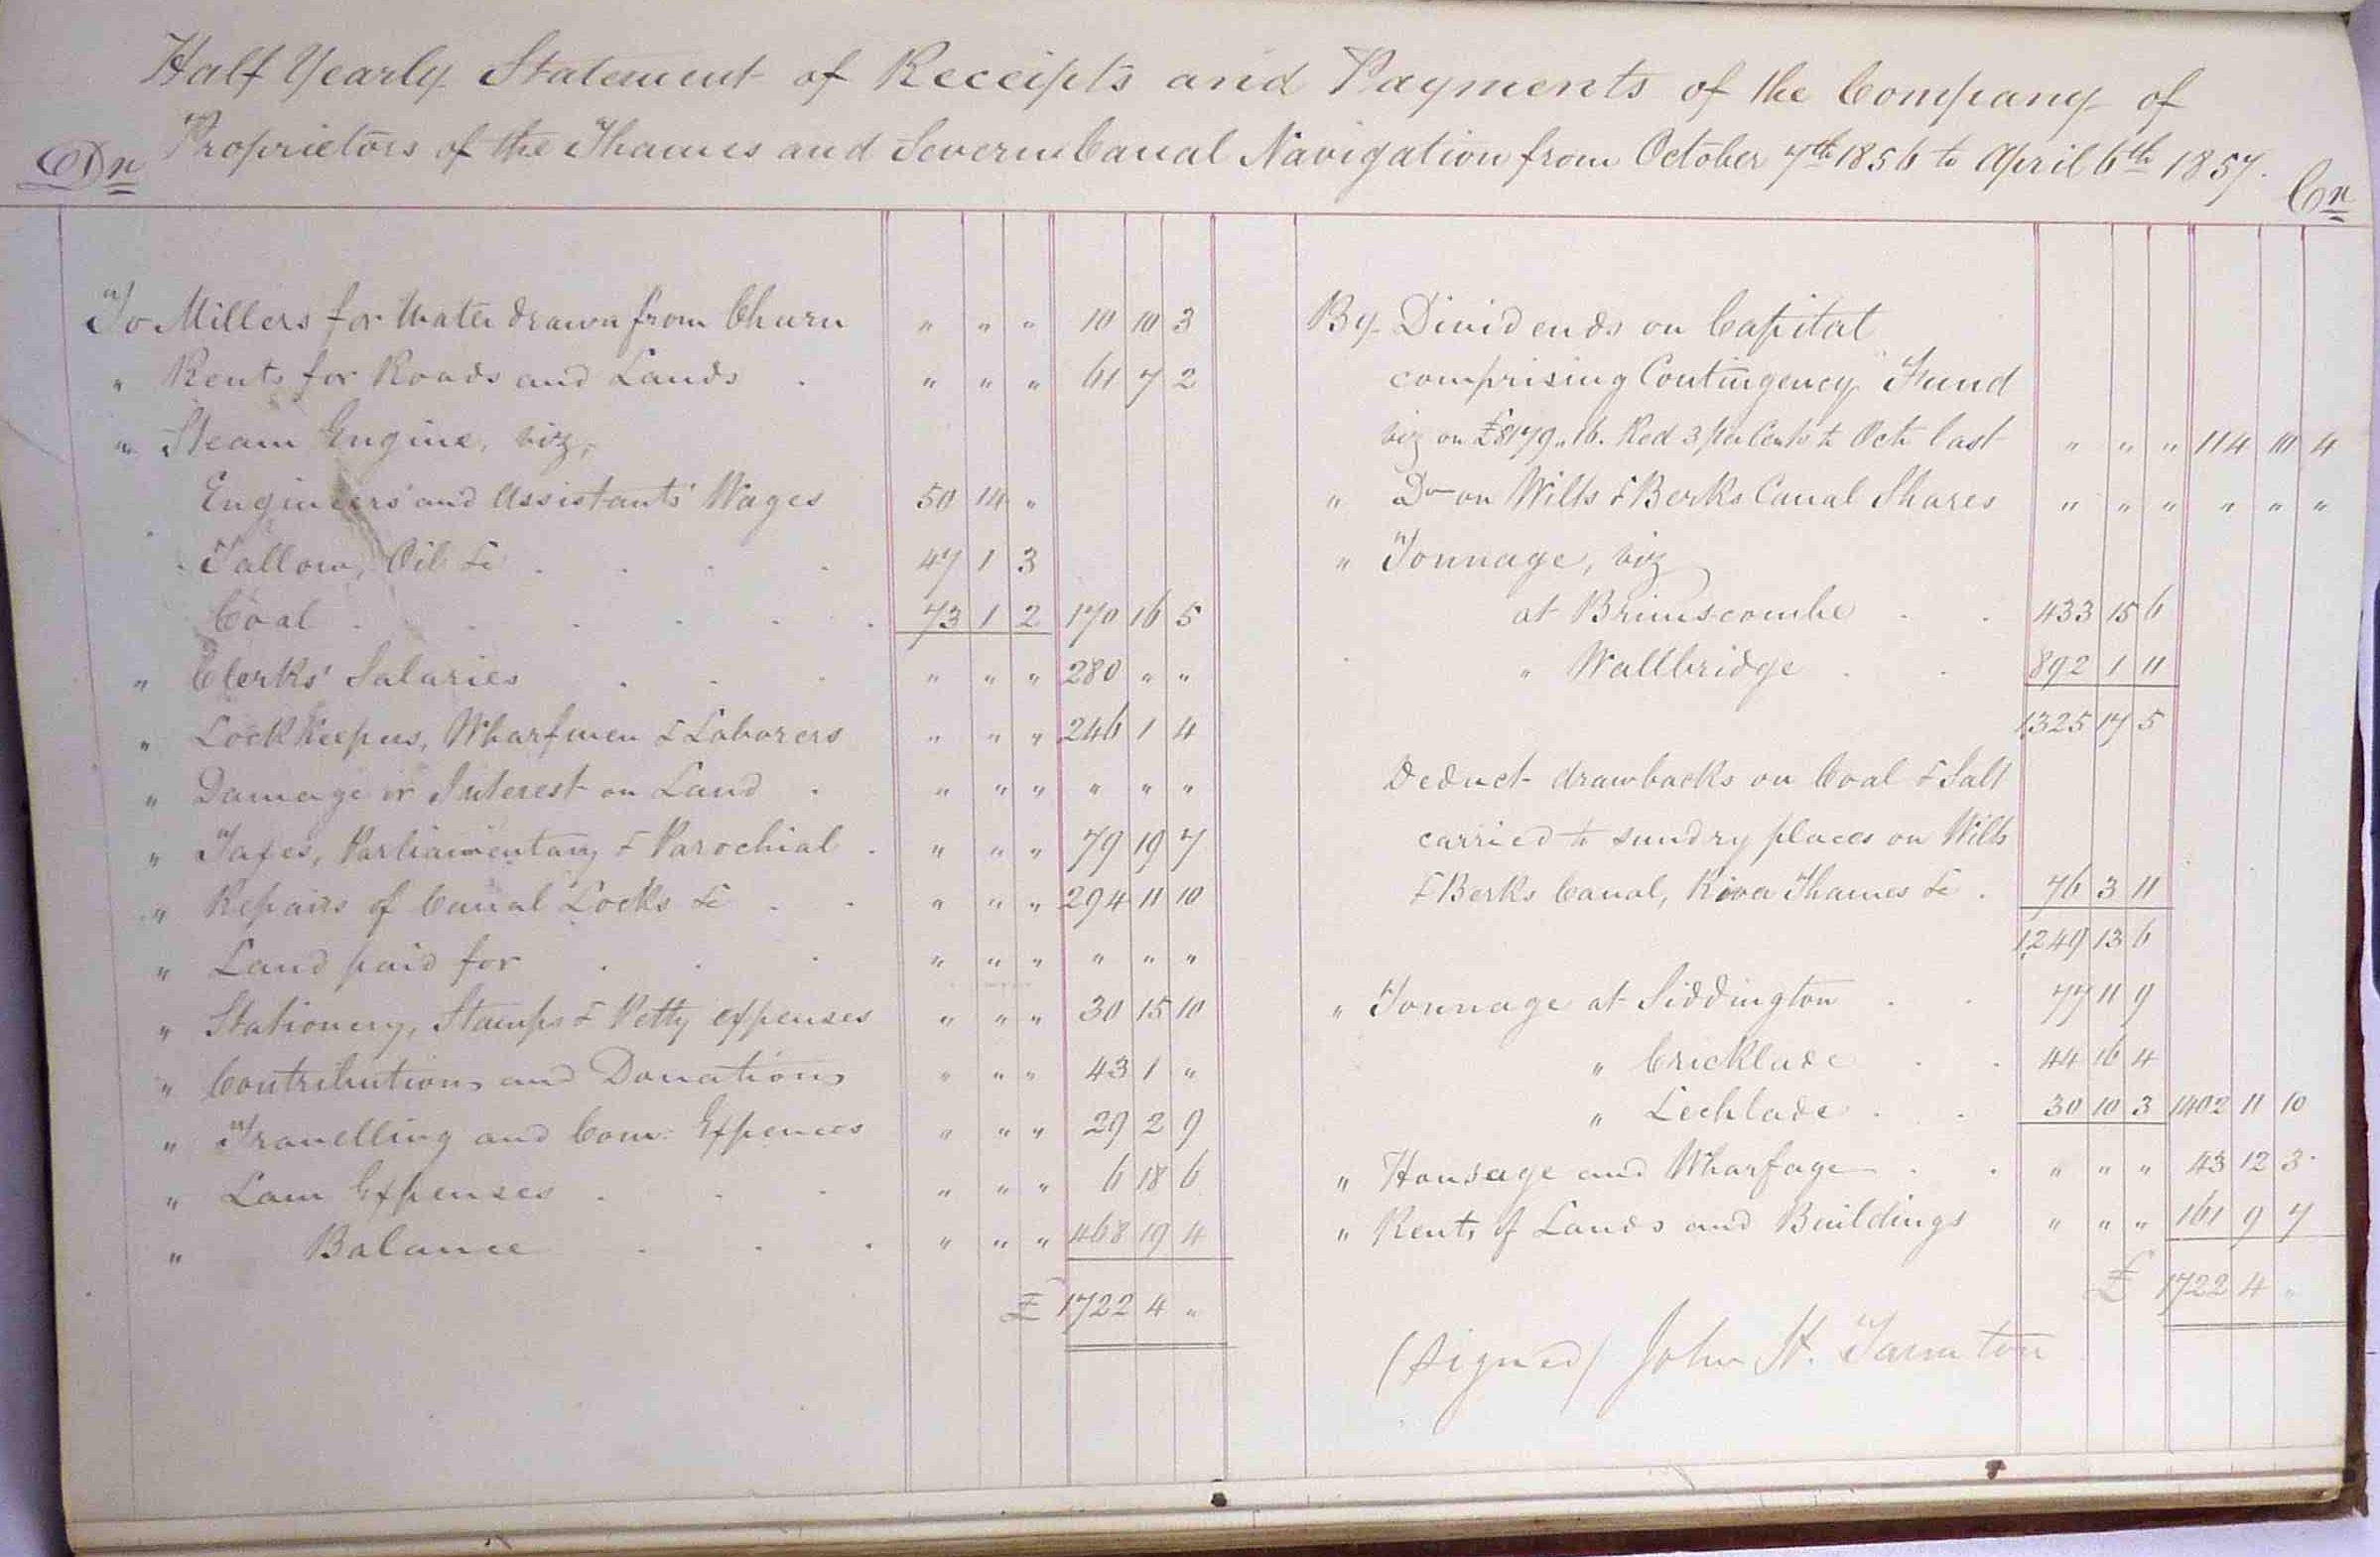 Half Yearly Statement of Receipts and Payments of the Company of
Proprietors of the Thames and Severn Canal Navigation from October 7th 1856 to April 6th 1857.
Dr
Cr
To Millers for Water drawn from Churn " " " 10 10 3
" Rents for Roads and Lands . " " " 61 7 2
" Steam Engine, viz,
Engineers' and Assistants' Wages 50 14 "
Tallow, Oil &c . . . . 47 1 3
Coal . . . . . . 73 1 2 170 16 5
" Clerks' Salaries . . . " " " 280 " "
" Lock Keepers, Wharfmen & Laborers " " " 246 1 4
" Damage or Interest on Land . " " " " " "
" Taxes, Parliamentary & Parochial . " " " 79 19 7
" Repairs of Canal Locks &c . . " " " 294 11 10
" Land paid for . . . " " " " " "
" Stationery, Stamps & Petty expenses " " " 30 15 10
" Contributions and Donations " " " 43 1 "
" Travelling and Com: Expences " " " 29 2 9
" Law Expenses . . . " " " 6 18 6
" Balance . . . " " " 468 19 4
£ 1722 4 "
By Dividends on Capital
comprising Contingency Fund
viz on £8179"16. Red 3 per Cents to Oct last " " " 114 10 4
" Do on Wilts & Berks Canal Shares " " " " " "
" Tonnage, viz
at Brimscombe . . 433 15 6
" Wallbridge . . 892 1 11
1325 17 5
Deduct drawbacks on Coal & Salt
carried to sundry places on Wilts
& Berks Canal, River Thames &c . 76 3 11
1249 13 6
" Tonnage at Siddington . . 77 11 9
" Cricklade . . 44 16 4
" Lechlade . . 30 10 3 1402 11 10
" Housage and Wharfage . . " " " 43 12 3
" Rents of Lands and Buildings " " " 161 9 7
£ 1722 4 "
(Signed) John H. Taunton